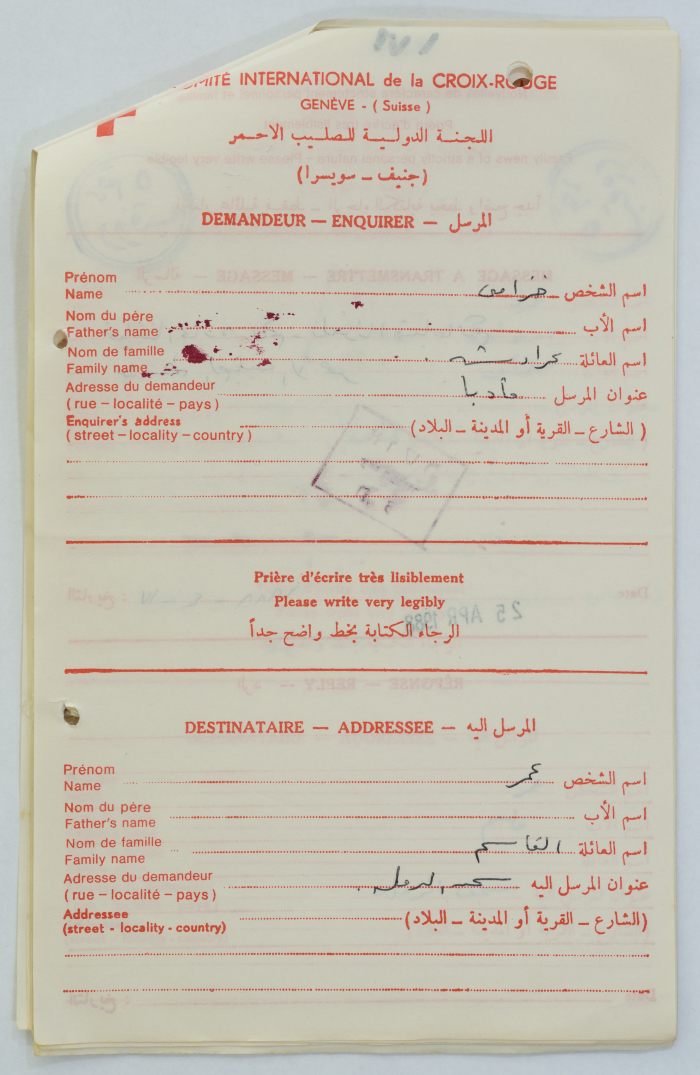 COMITÉ INTERNATIONAL de la CROIX-ROUGE
GENÈVE - ( Suisse )
اللجنة الدولية للصليب الاحمر
(جنيف ـ سويسرا)
DEMANDEUR — ENQUIRER — المرسل
Prénom
Name خزامى اسم الشخص
Nom du père
Father's name اسم الأب
Nom de famille
Family name حرادشه اسم العائلة
Adresse du demandeur
( rue – localité – pays ) مأدبا عنوان المرسل
Enquirer's address
( street – locality – country ) ( الشارع ـ القرية أو المدينة ـ البلاد)
Prière d'écrire très lisiblement
Please write very legibly
الرجاء الكتابة بخط واضح جداً
25 APR 1988
DESTINATAIRE — ADDRESSEE — المرسل اليه
Prénom
Name عمر اسم الشخص
Nom du père
Father's name اسم الأب
Nom de famille
Family name القاسم اسم العائلة
Adresse du demandeur
( rue – localité – pays ) الرمله عنوان المرسل اليه
Addressee
(street - locality - country) (الشارع ـ القرية أو المدينة ـ البلاد)